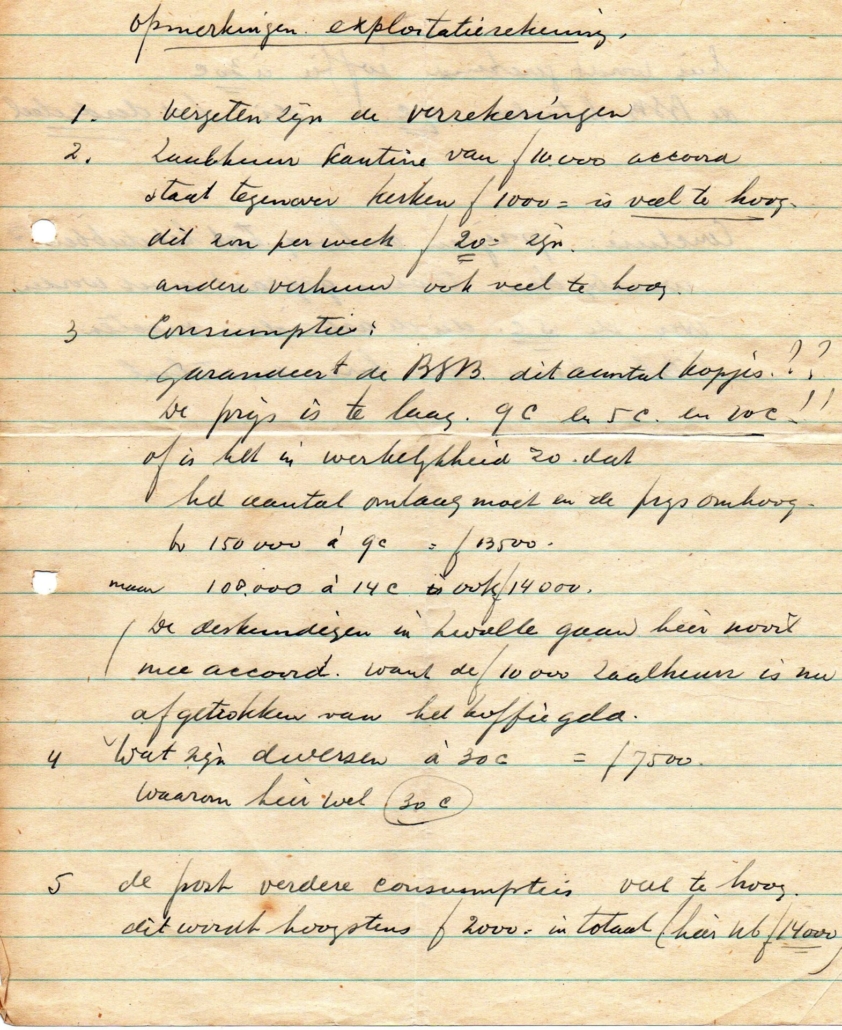 opmerkingen exploitatierekening.
1. vergeten zijn de verzekeringen
2. Zaalhuur kantine van f 10.000 accoord
staat tegenover kerken f 1000 = is veel te hoog.
dit zou per week f 20 = zijn.
andere verhuur ook veel te hoog.
3 Consumptie:
garandeert de BSB. dit aantal kopjes.??
De prijs is te laag. 9c en 5c. en 20c!!
of is het in werkelijkheid zo dat
het aantal omlaag moet en de prijs omhoog.
150000 à 9c = f 13500.
maar 100.000 à 14c is ook f 14000.
De deskundigen in Zwolle gaan hier nooit
mee accoord. want de f 10000 Zaalhuur is nu
afgetrokken van het koffiegeld.
4 Wat zijn diversen à 30c = f 7500.
waarom hier wel 30c
5 de post verdere consumpties veel te hoog.
dit wordt hoogstens f 2000 = in totaal (hier f 14000)